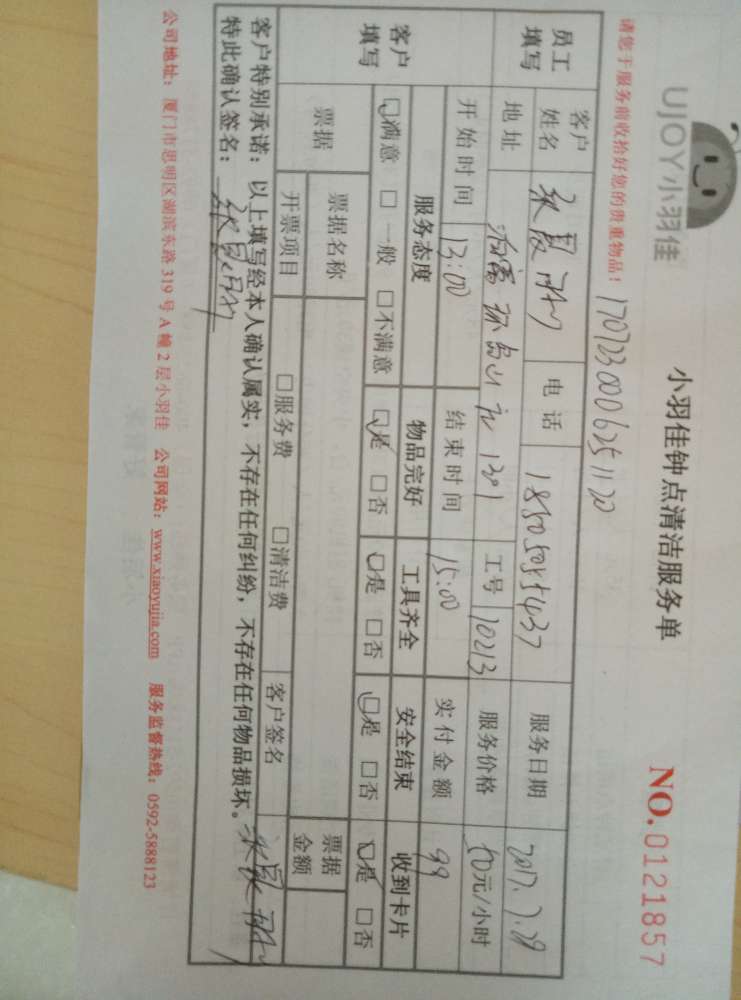 UJOY小羽佳
小羽佳钟点清洁服务单
NO.0121857
请您于服务前收拾好您的贵重物品！ 17072300062511 20
员工填写 客户姓名 电话 18505055437 服务日期 2017.7.29
地址 1301 工号 10213 服务价格 50元/小时
客户填写 开始时间 13:00 结束时间 15:00 实付金额 99
服务态度 物品完好 工具齐全 安全结束 收到卡片
☐满意 ☐一般 ☐不满意 ☐是 ☐否 ☐是 ☐否 ☐是 ☐否 ☐是 ☐否
票据 票据名称 票据金额
开票项目 ☐服务费 ☐清洁费 客户签名
客户特别承诺：以上填写经本人确认属实，不存在任何纠纷，不存在任何物品损坏。
特此确认签名：
公司地址：厦门市思明区湖滨东路319号A幢2层小羽佳 公司网站：www.xiaoyujia.com 服务监督热线：0592-5888123